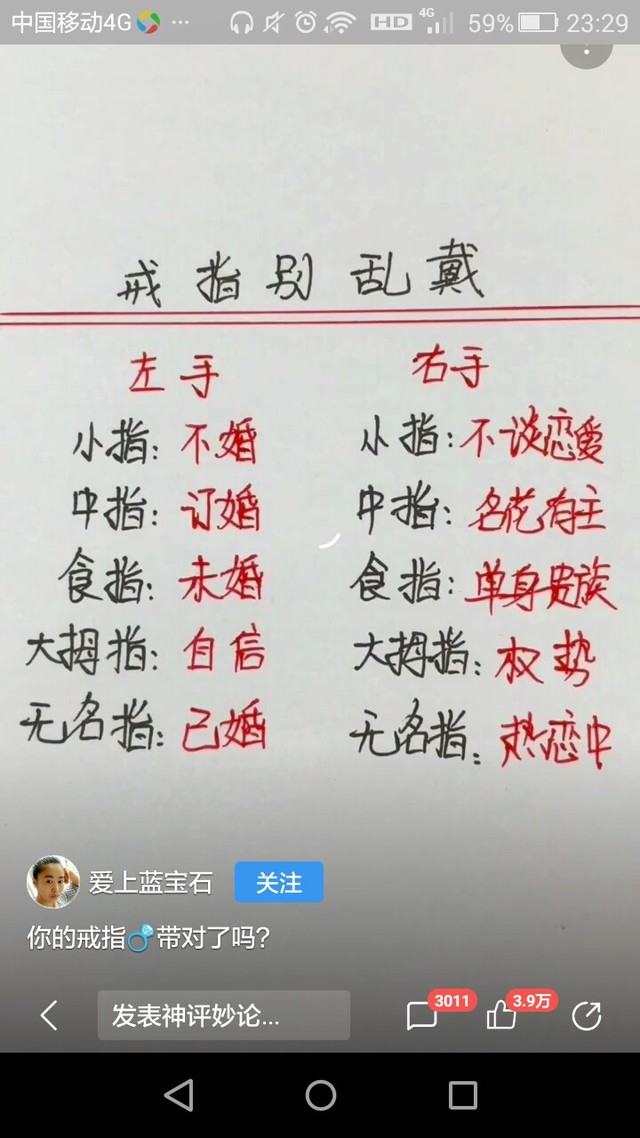 中国移动4G ... HD 4G 59% 23:29
戒指别乱戴
左手 右手
小指：不婚 小指：不谈恋爱
中指：订婚 中指：名花有主
食指：未婚 食指：单身贵族
大拇指：自信 大拇指：权势
无名指：已婚 无名指：热恋中
爱上蓝宝石 关注
你的戒指💍带对了吗?
发表神评妙论... 3011 3.9万